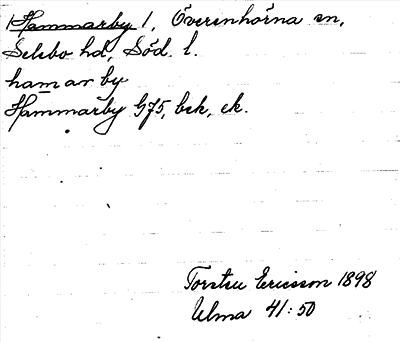 |Hammarby|, Överenhörna sn,
Selebo hd, Söd. l.
hamar by
Hammarby G75, bek, ek.
Torsten Ericsson 1898
Ulma 41:50